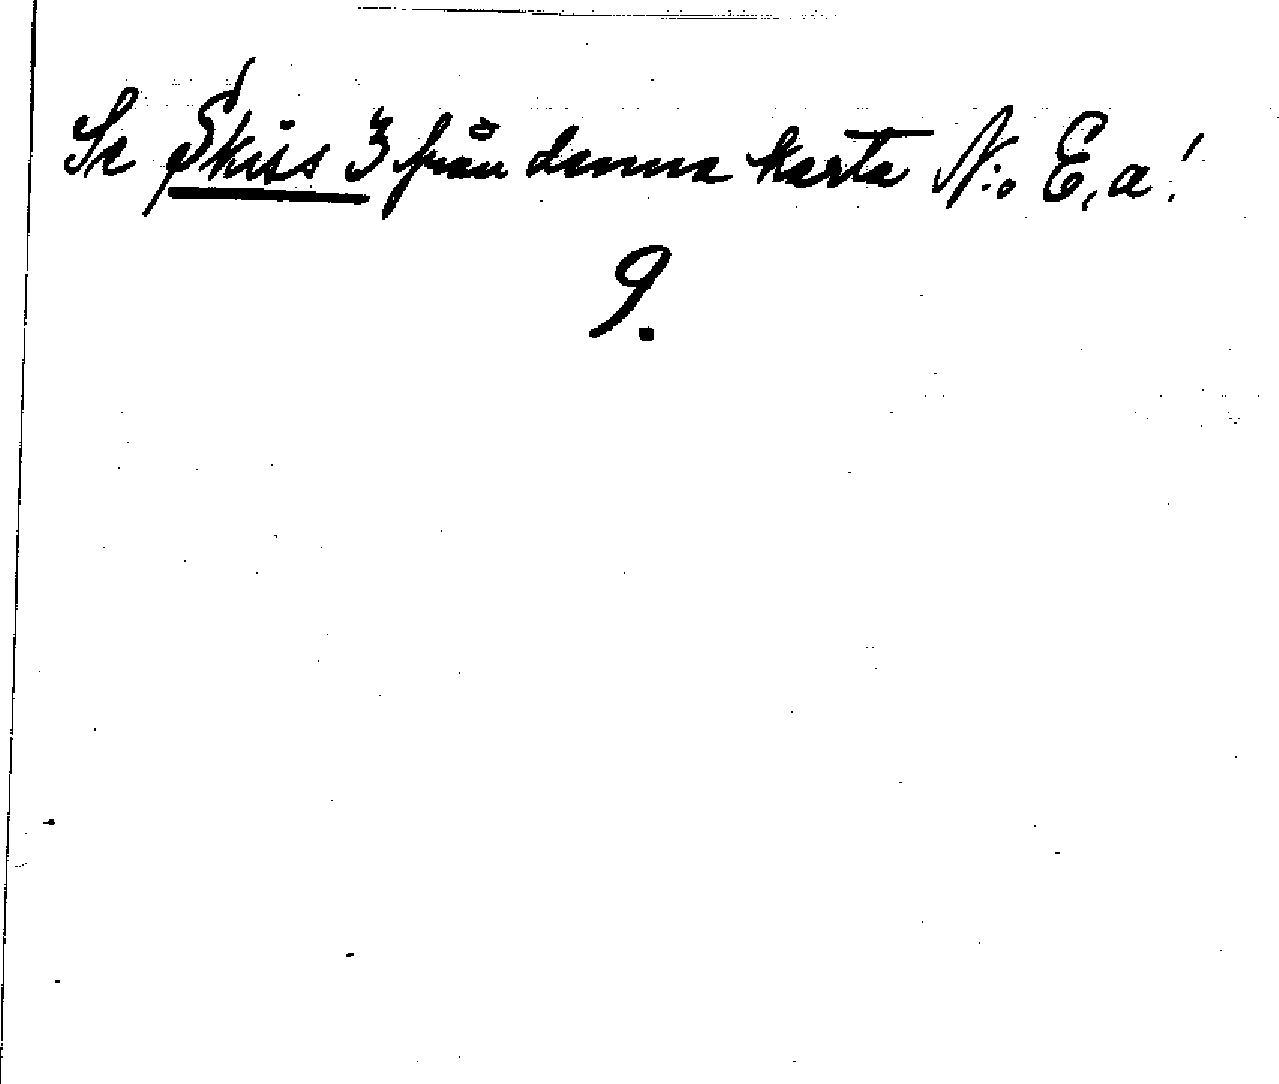 Se Skiss 3 från denna karta N:o E,a!
9.